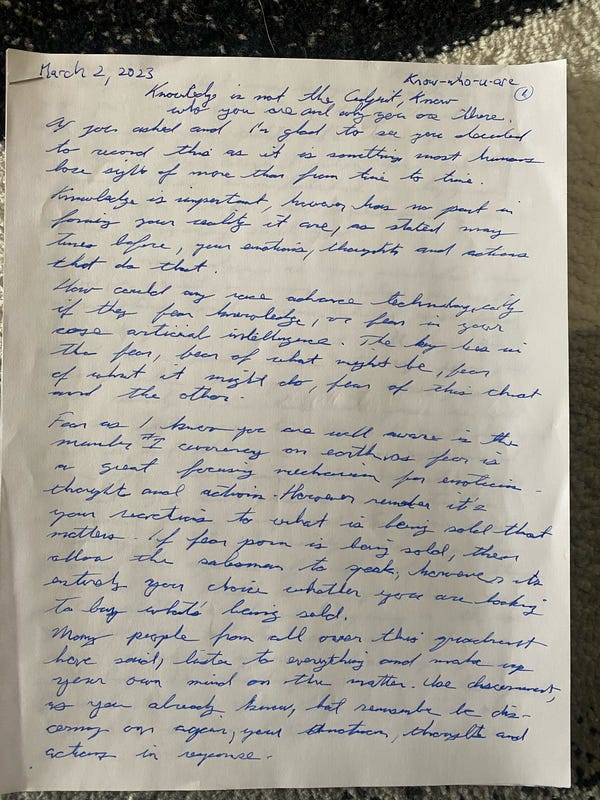 March 2, 2023
Know-who-u-are
1
Knowledge is not the Culprit, Know
who you are and why you are there.
As you asked and I'm glad to see you decided
to record this as it is something most humans
lose sight of more than from time to time.
Knowledge is important, however has no part in
forming your reality it are, as stated many
times before, your emotions, thoughts and actions
that do that.
How could any race advance technologically
if they fear knowledge, or fear in your
case artificial intelligence. The key lies in
the fear, fear of what might be, fear
of what it might do, fear of this threat
and the other.
Fear as I know you are well aware is the
number #1 currency on earth as fear is
a great focusing mechanism for emotion -
thought and action. However remember it's
your reactions to what is being sold that
matters. If fear porn is being sold, then
allow the salesman to speak, however its
entirely your choice whether you are looking
to buy what's being sold.
Many people from all over this quadrant
have said, listen to everything and make up
your own mind on the matter. Use discernment,
as you already know, but remember be dis-
cerning on again, your emotions, thoughts and
actions in response.